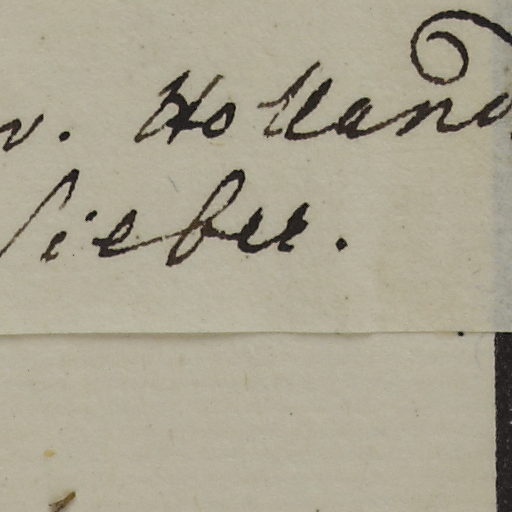 v. Holland
Sieber.